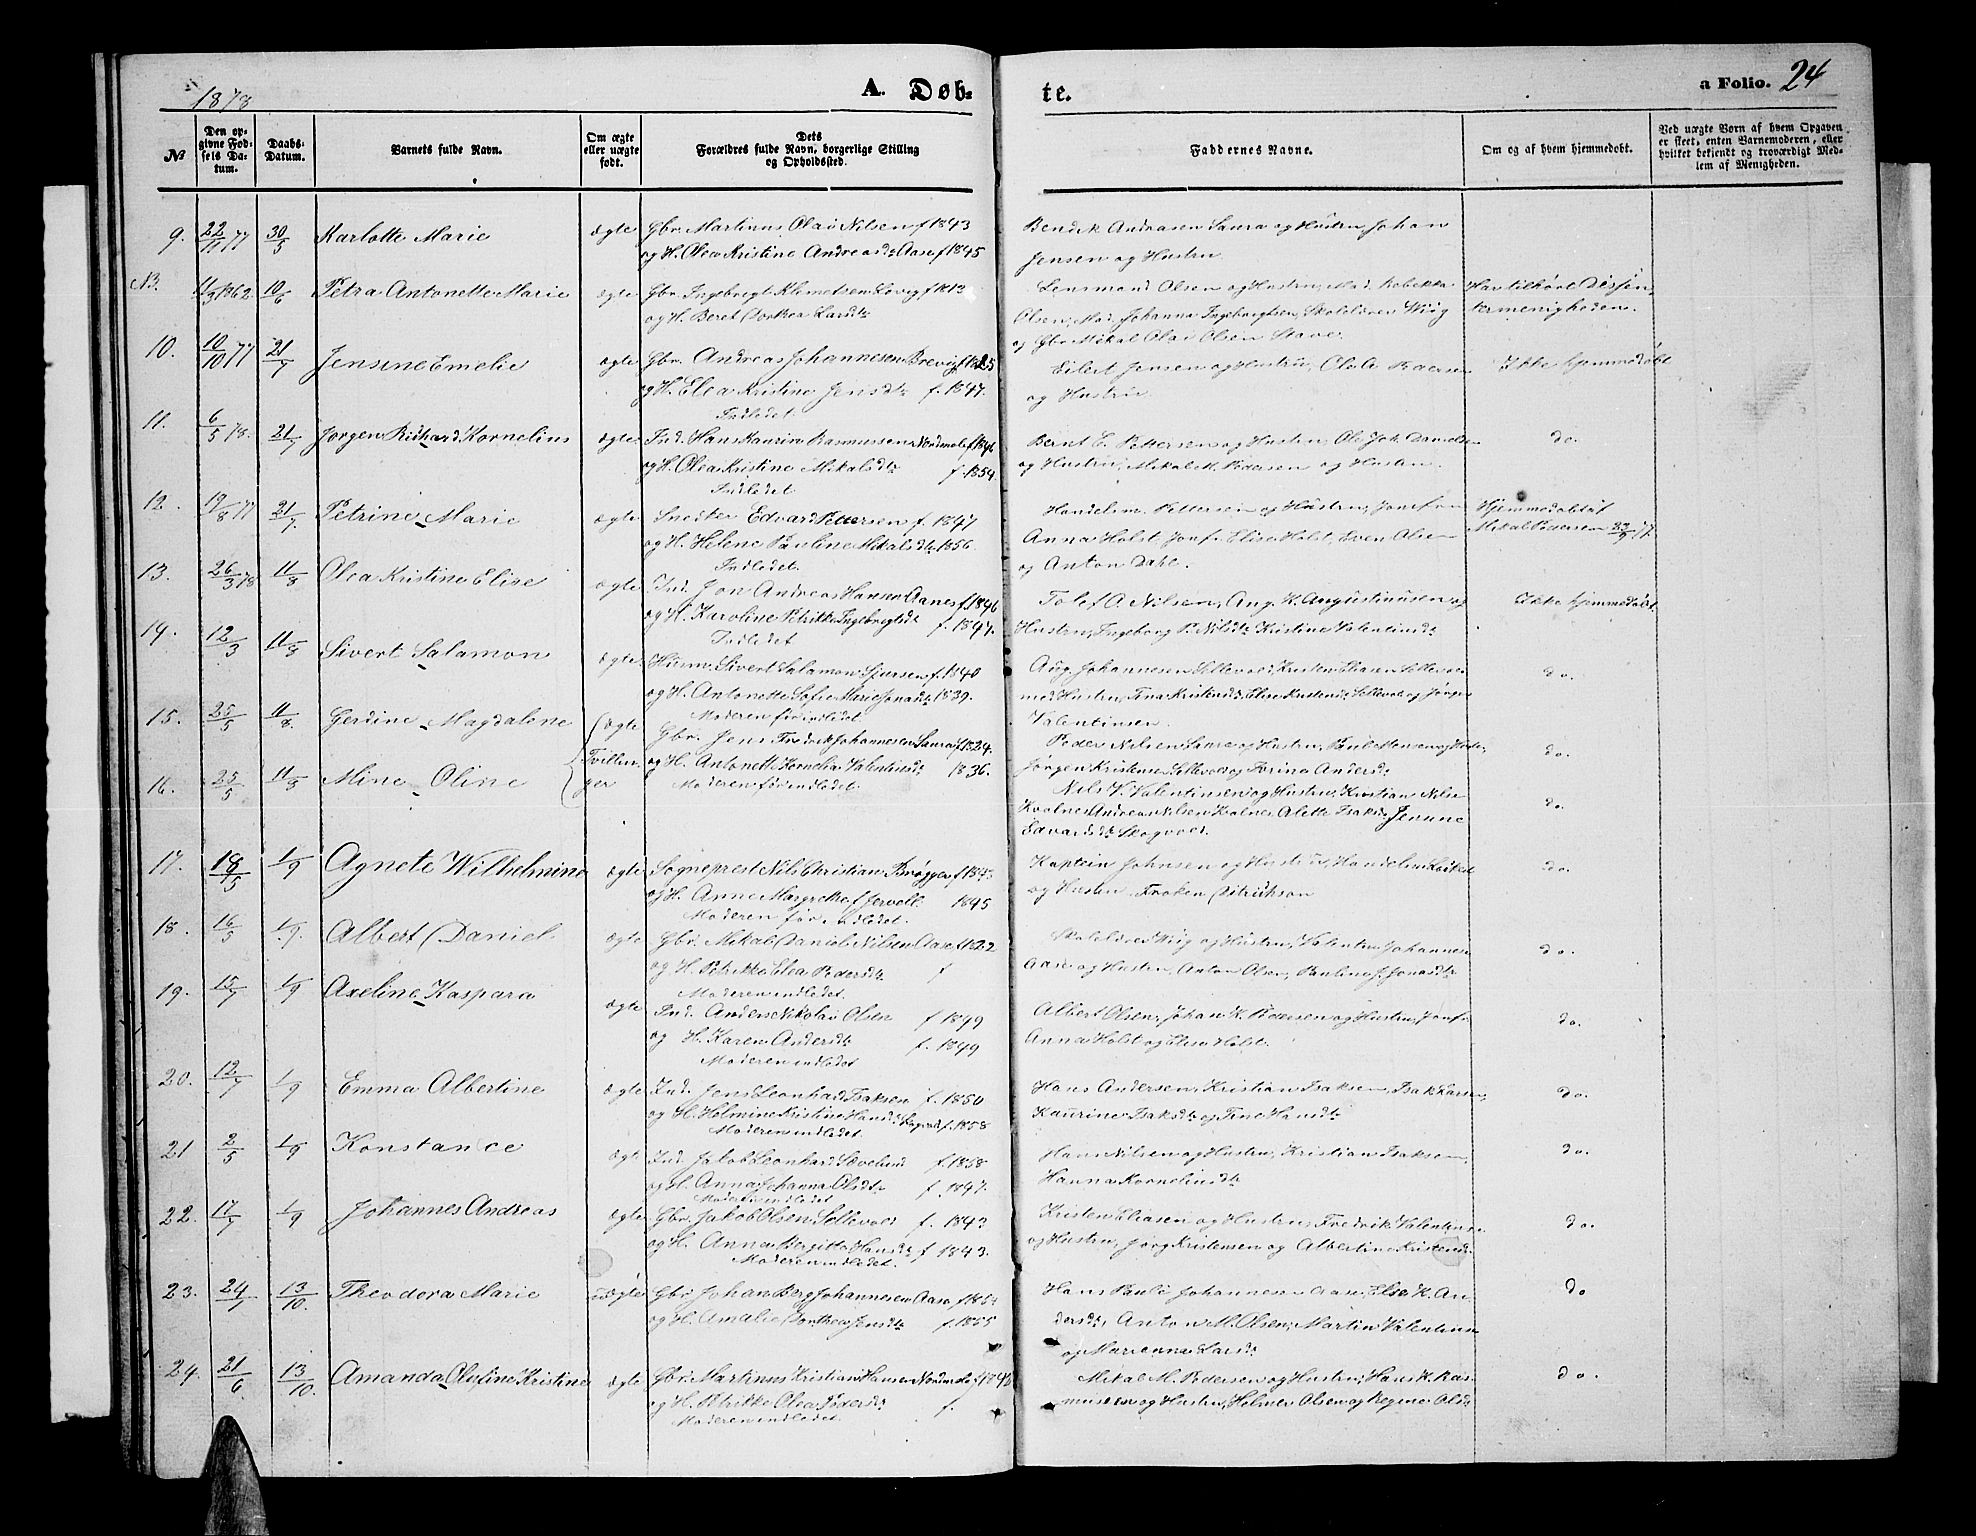 1878
A. Døb-
te.
a Folio. 24
№
Den op-
givne Fød-
sels Da-
tum.
Daabs-
Datum.
Barnets fulde Navn.
Om ægte
eller uægte
født.
Dets
Forældres fulde Navn, borgerlige Stilling
og Opholdssted.
Faddernes Navne.
Om og af hvem hjemmedøbt.
Ved uægte Børn af hvem Opgaven
er skeet, enten Barnemoderen, eller
hvilket bekjendt og troværdigt Med-
lem af Menigheden.
9. 22/11 77 30/5 Karlotte Marie ægte Gbr. Martinus Olai Nilsen f 1843
og H. Olea Kristine Andreasdtr Aase f 1845
Bendik Andreasen Saura og Hustru Johan
Jensen og Hustru
NB. 11/3 1862 10/6 Petra Antonette Marie ægte Gbr. Ingebrigt Klemetsen Lovig f 1813
og H. Beret Dorthea Larsdtr
Lensmand Olsen og Hustru, Mad. Rebekka
Olsen, Mad. Johanna Ingebrigtsen, Skolelærer Wiig
og Gbr Mikal Olai Olsen Stave.
Har tilhørt Dissen-
termenigheden.
10. 10/10 77 21/7 Jensine Emelie ægte Gbr. Andreas Johannesen Brevig f 1825
og H. Elea Kristine Jensdtr f. 1847.
Indledet
Eilert Jensen og Hustru, Ole A
og Hustru
Ikke hjemmedøbt
11. 6/5 78. 21/7 Jørgen Richard Kornelius ægte Ind. Hans Kaurin Rasmussen Nordmele f 1846
og H. Olea Kristine Mikalsdtr f. 1854.
Indledet
Bernt E. Pettersen og Hustru, Ole Joh. Danielsen
og Hustru, Mikal M. Pedersen og Hustru.
do.
12. 19/8 77 21/7. Petrine Marie ægte Snedker Edvard Pettersen f. 1847
og H. Helene Pauline Mikalsdtr 1856
Indledet.
Handelsm. Pettersen og Hustru, Jomfru
Anna Holst Jomfr. Elise Holst, Even Olsen
og Anton Dahl.
Hjemmedøbt af
Mikal Pedersen 23/9 77.
13. 26/3 78 11/8 Olea Kristine Elise ægte Ind. Jon Andreas Hansen Aanes f. 1846
og H. Karoline Petrikke Ingebrigtsdt f. 1847.
Indledet
Tolef O. Nilsen, Aug. K. Augustinusen og
Hustru, Ingeborg P. Nilsdtr Kristine Valentinsdtr
Ikke hjemmedøbt.
14. 12/3 11/8 Sivert Salamon ægte Huusm. Sivert Salamon Sjursen f. 1840
og H. Antonette Sofie Marie Jonsdtr 1839.
Moderen før indledet
Aug. Johannesen Sellevold, Kristen Eliasen Sellevold
med Hustru, Tina Kristensd. Elise Kristensd. Sellevol og Jørgen
Valentinsen.
do.
15. 25/5 11/8. Gerdine Magdalene ægte
Gbr. Jens Fredrik Johannesen Saura f. 1824.
og H. Antonette Kornelia Valentinsdt 1836.
Moderen før indledet.
Peder Nilsen Saura og Hustru, Paul Hansen og Hustru,
Jørgen Kristensen Sellevol og Torina Andersdtr
do.
16. 25/5 11/8 Mine Oline Tvillin-
ger
Nils V. Valentinsen og Hustru, Kristian Nilsen
Kvalnes, Andreas Nilsen Kvalnes Alette Isaksdtr Jensine
Edvardsdtr Skogvold.
do.
17. 18/5 1/9 Agnete Wilhelmine ægte Sogneprest Nils Christian Brøgger f 1843
og H. Anne Margrethe f. Jervell. 1845
Moderen før indledet.
Kaptein Johnsen og Hustru, Handelsm.
og Hustru Frøken Ditrikson
do.
18. 16/5 1/9. Albert Daniel ægte Gbr. Mikal Daniel Nilsen Aase f. 1822
og H. Petrikke Elea Pedersdtr f
Moderen indledet.
Skolelærer Wiig og Hustru, Valentin Johannesen
Aase og Hustru, Anton Olsen, Pauline J. Jonasdtr
do.
19. 15/7 1/9 Axeline Kaspara ægte Ind. Anders Nikolai Olsen f 1849
og H. Karen Andersdtr f. 1849
Moderen indledet
Albert Olsen, Johan K. Pedersen og Hustru, Jomfr.
Anna Holst og Elise Holst.
do.
20. 12/7 1/9 Emma Albertine ægte Ind. Jens Leonhard Isaksen f. 1850
og H. Holmine Kristine Hansd. f. 1858
Moderen indledet.
Hans Andersen, Kristian Isaksen, Isak Larsen,
Kaurine Isaksdtr og Tine Hansdtr
do.
21 2/5 1/9 Konstance ægte Ind. Jakob Leonhard f. 1858
og H. Anna Johanna Olsdtr f. 1847.
Moderen indledet
Hans Nilsen og Hustru, Kristian Isaksen,
Hanna Korneliusdtr
do.
22. 17/7 1/9 Johannes Andreas ægte Gbr. Jakob Olsen Sellevol f. 1843
og H. Anna Bergitta Hansdtr f 1843.
Moderen indledet.
Kristen Eliasen og Hustru, Fredrik Valentinsen
og Hustru, Jørg Kristensen og Albertine Kristensd.
do.
23. 24/7 13/10. Theodora Marie ægte Gbr. Johan Berg Johannesen Aase f. 1852
og H. Amalie Dorthea Jensdtr f. 1855
Hans Paulê Johannesen Aase, Else K. An-
dersdtr, Anton M. Olsen, Martin Valentinsen
og Marianne Larsdtr
do
24. 21/6 13/10. Amanda Olufine Kristine ægte Gbr. Martinus Kristian Hansen Nordmele f 1846
og H. Petrikke Olea Pedersdtr f.
Moderen indledet.
Mikal M. Pedersen og Hustru, Hans K. Ras-
mussen og Hustru, Holmer Olsen og Regine Olsd.
do.